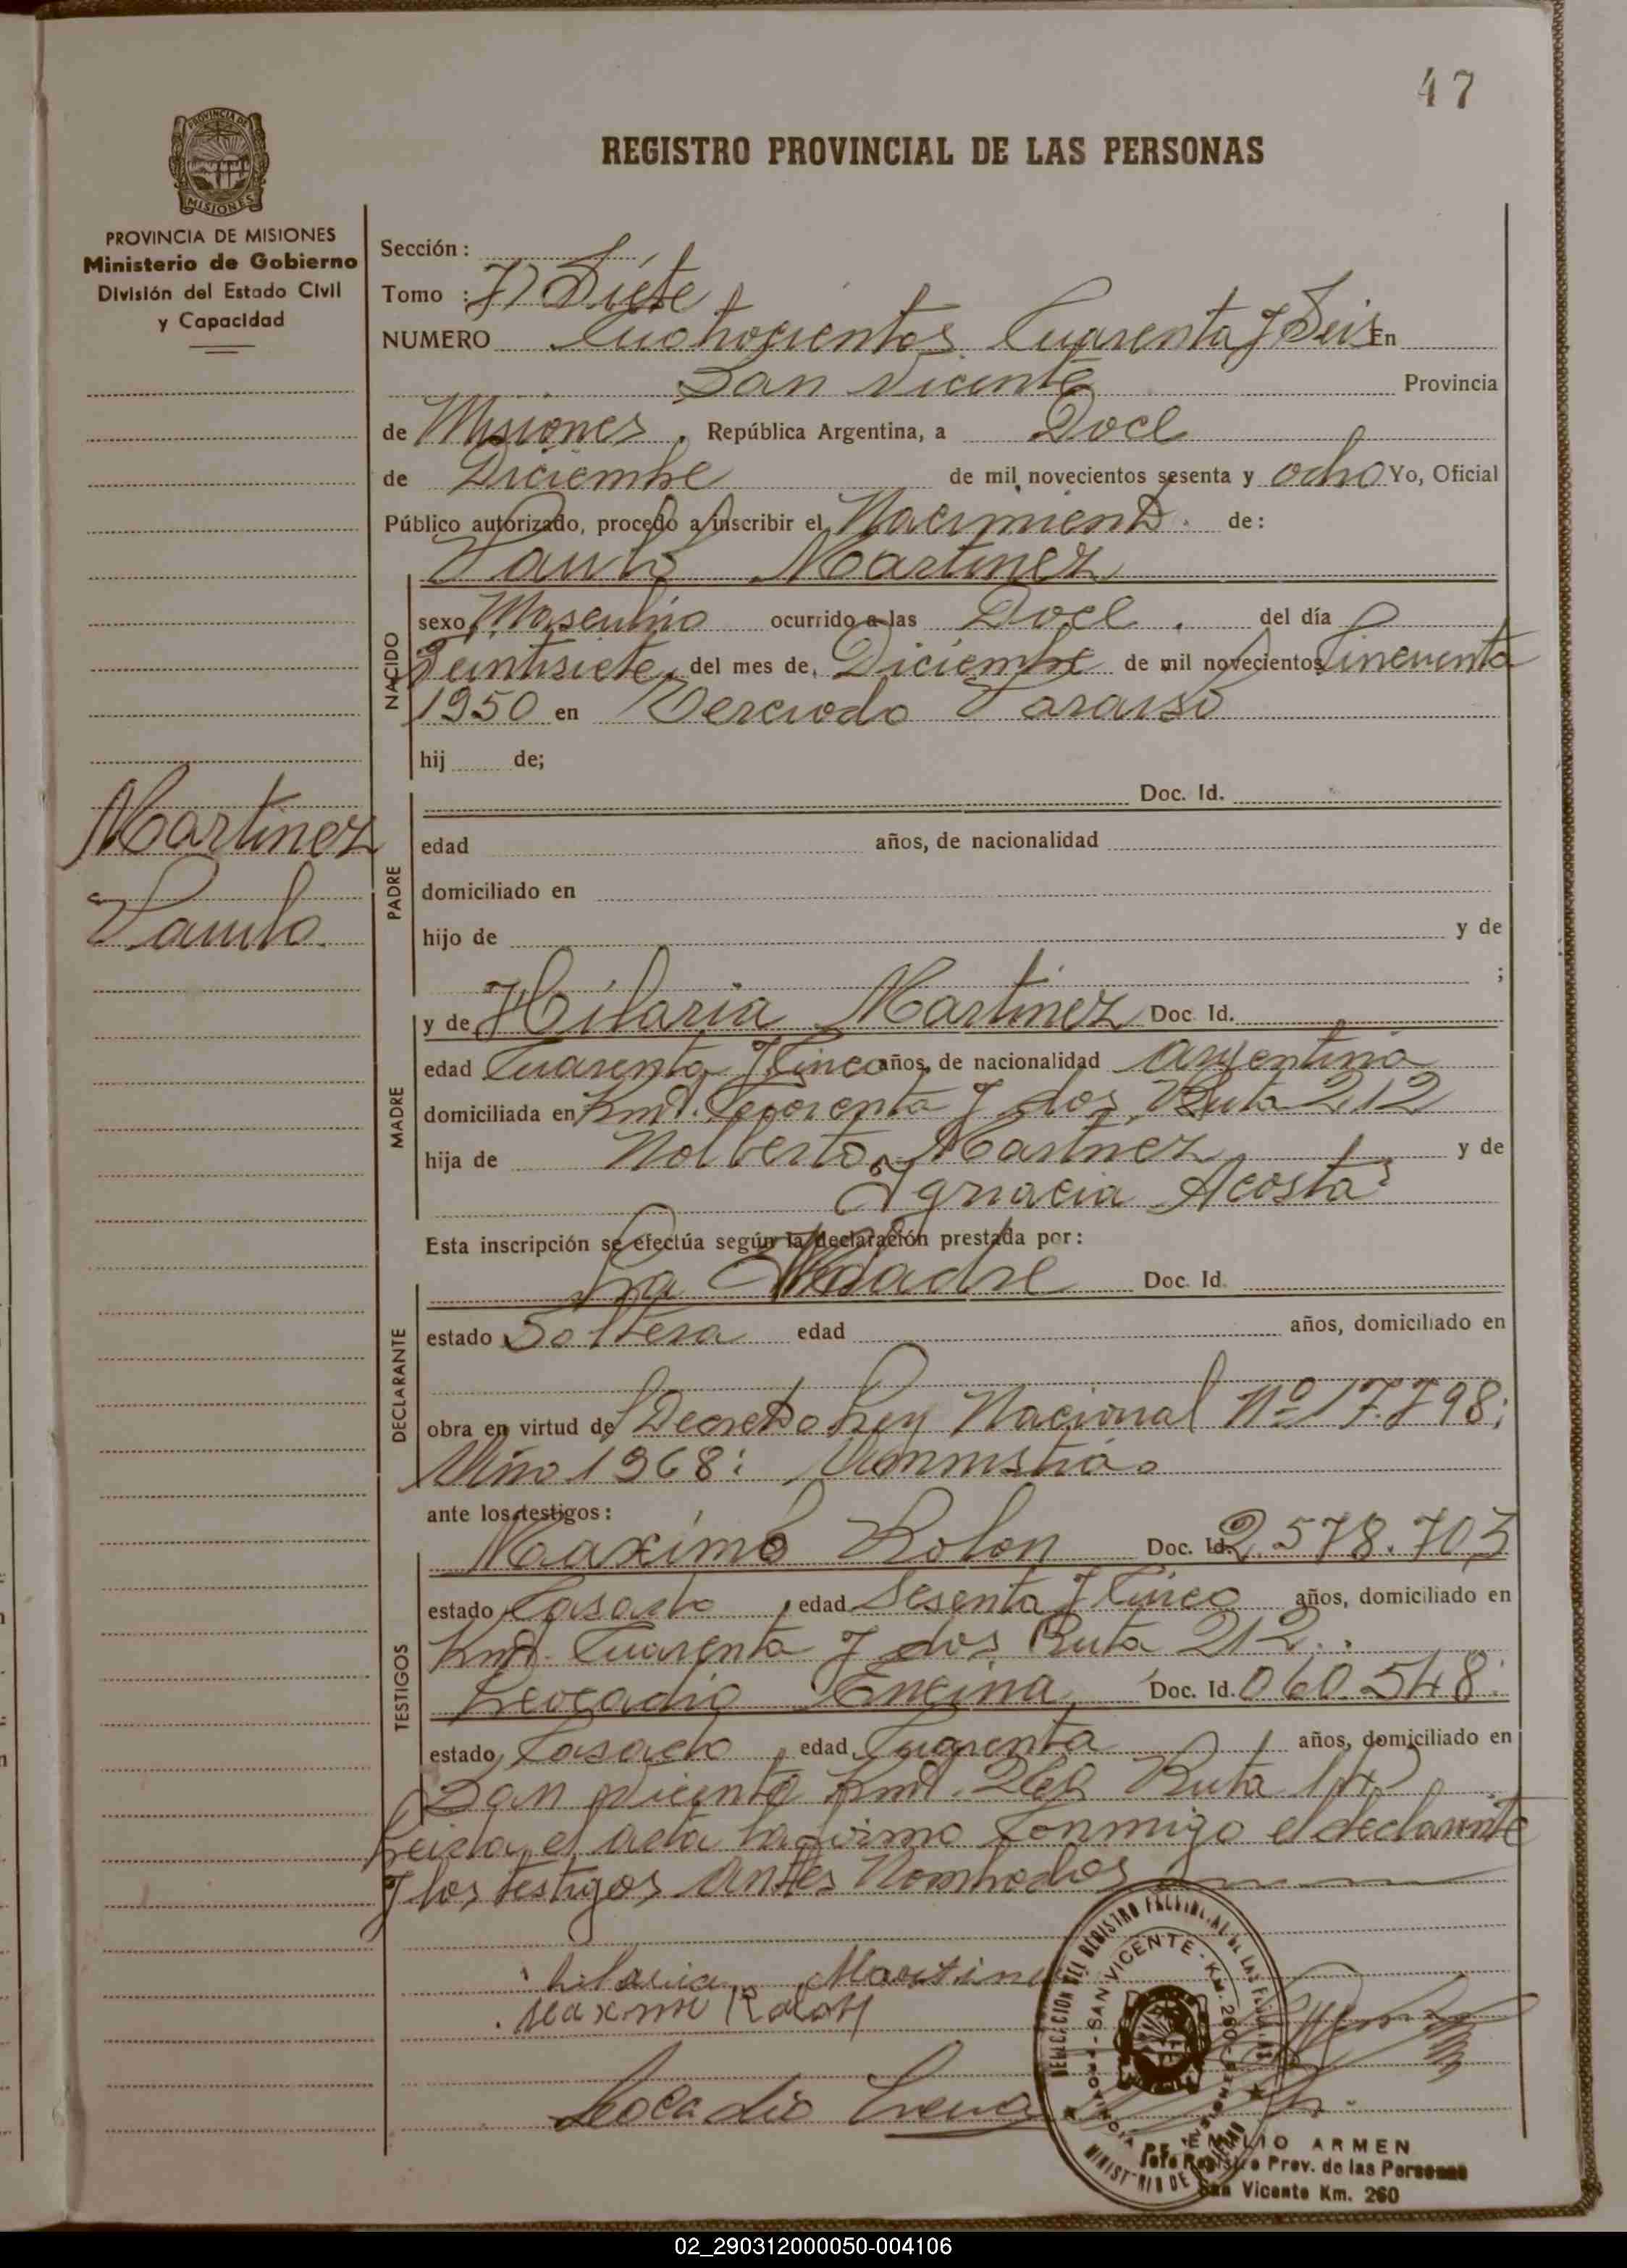 47
REGISTRO PROVINCIAL DE LAS PERSONAS
PROVINCIA DE MISIONES
PROVINCIA DE MISIONES
Ministerio de Gobierno
División del Estado Civil
y Capacidad
Sección :
Tomo : 7) Siete
NUMERO Cuatrocientos Cuarenta y Seis En
San Vicente Provincia
de Misiones, República Argentina, a Doce
de Diciembre de mil novecientos sesenta y ocho Yo, Oficial
Público autorizado, procedo a inscribir el Nacimiento de :
Paulo Martinez
NACIDO
sexo Masculino ocurrido a las Doce . del día
Veintisiete, del mes de, Diciembre de mil novecientos Cincuenta
1950 en Paraiso
hij de;
Martinez
Paulo
PADRE
Doc. Id.
edad años, de nacionalidad
domiciliado en
hijo de y de
;
MADRE
y de Hilaria Martinez Doc. Id.
edad Cuarenta y Cinco años, de nacionalidad Argentina
domiciliada en Kmt. y dos, Ruta 212
hija de Nolberto Martinez y de
Ignacia Acosta
Esta inscripción se efectúa según la declaración prestada por :
DECLARANTE
La Madre Doc. Id.
estado Soltera edad años, domiciliado en
obra en virtud de Decreto Ley Nacional Nº 17.798;
Año 1968:
ante los testigos :
TESTIGOS
Maximo Rolon Doc. Id. 2.578.703
estado Casado, edad Sesenta y Cinco años, domiciliado en
Kmt. Cuarenta y dos Ruta 212..
Leocadio Encina, Doc. Id. 060.548:
estado, Casado, edad Cuarenta años, domiciliado en
San Vicente Kmt. Ruta 14
Leida el acta la firma Conmigo el declarante
y los testigos Antes Nombrados
hilaria Martine
maximo Rolon
Leocadio
DELEGACION DEL REGISTRO PROVINCIAL DE LAS PERSONAS
SAN VICENTE - KM. 260 - MISIONES
PROVINCIA
MINISTERIO DE GOBIERNO
EMILIO ARMEN
Jefe Registro Prov. de las Personas
San Vicente Km. 260
02_290312000050-004106